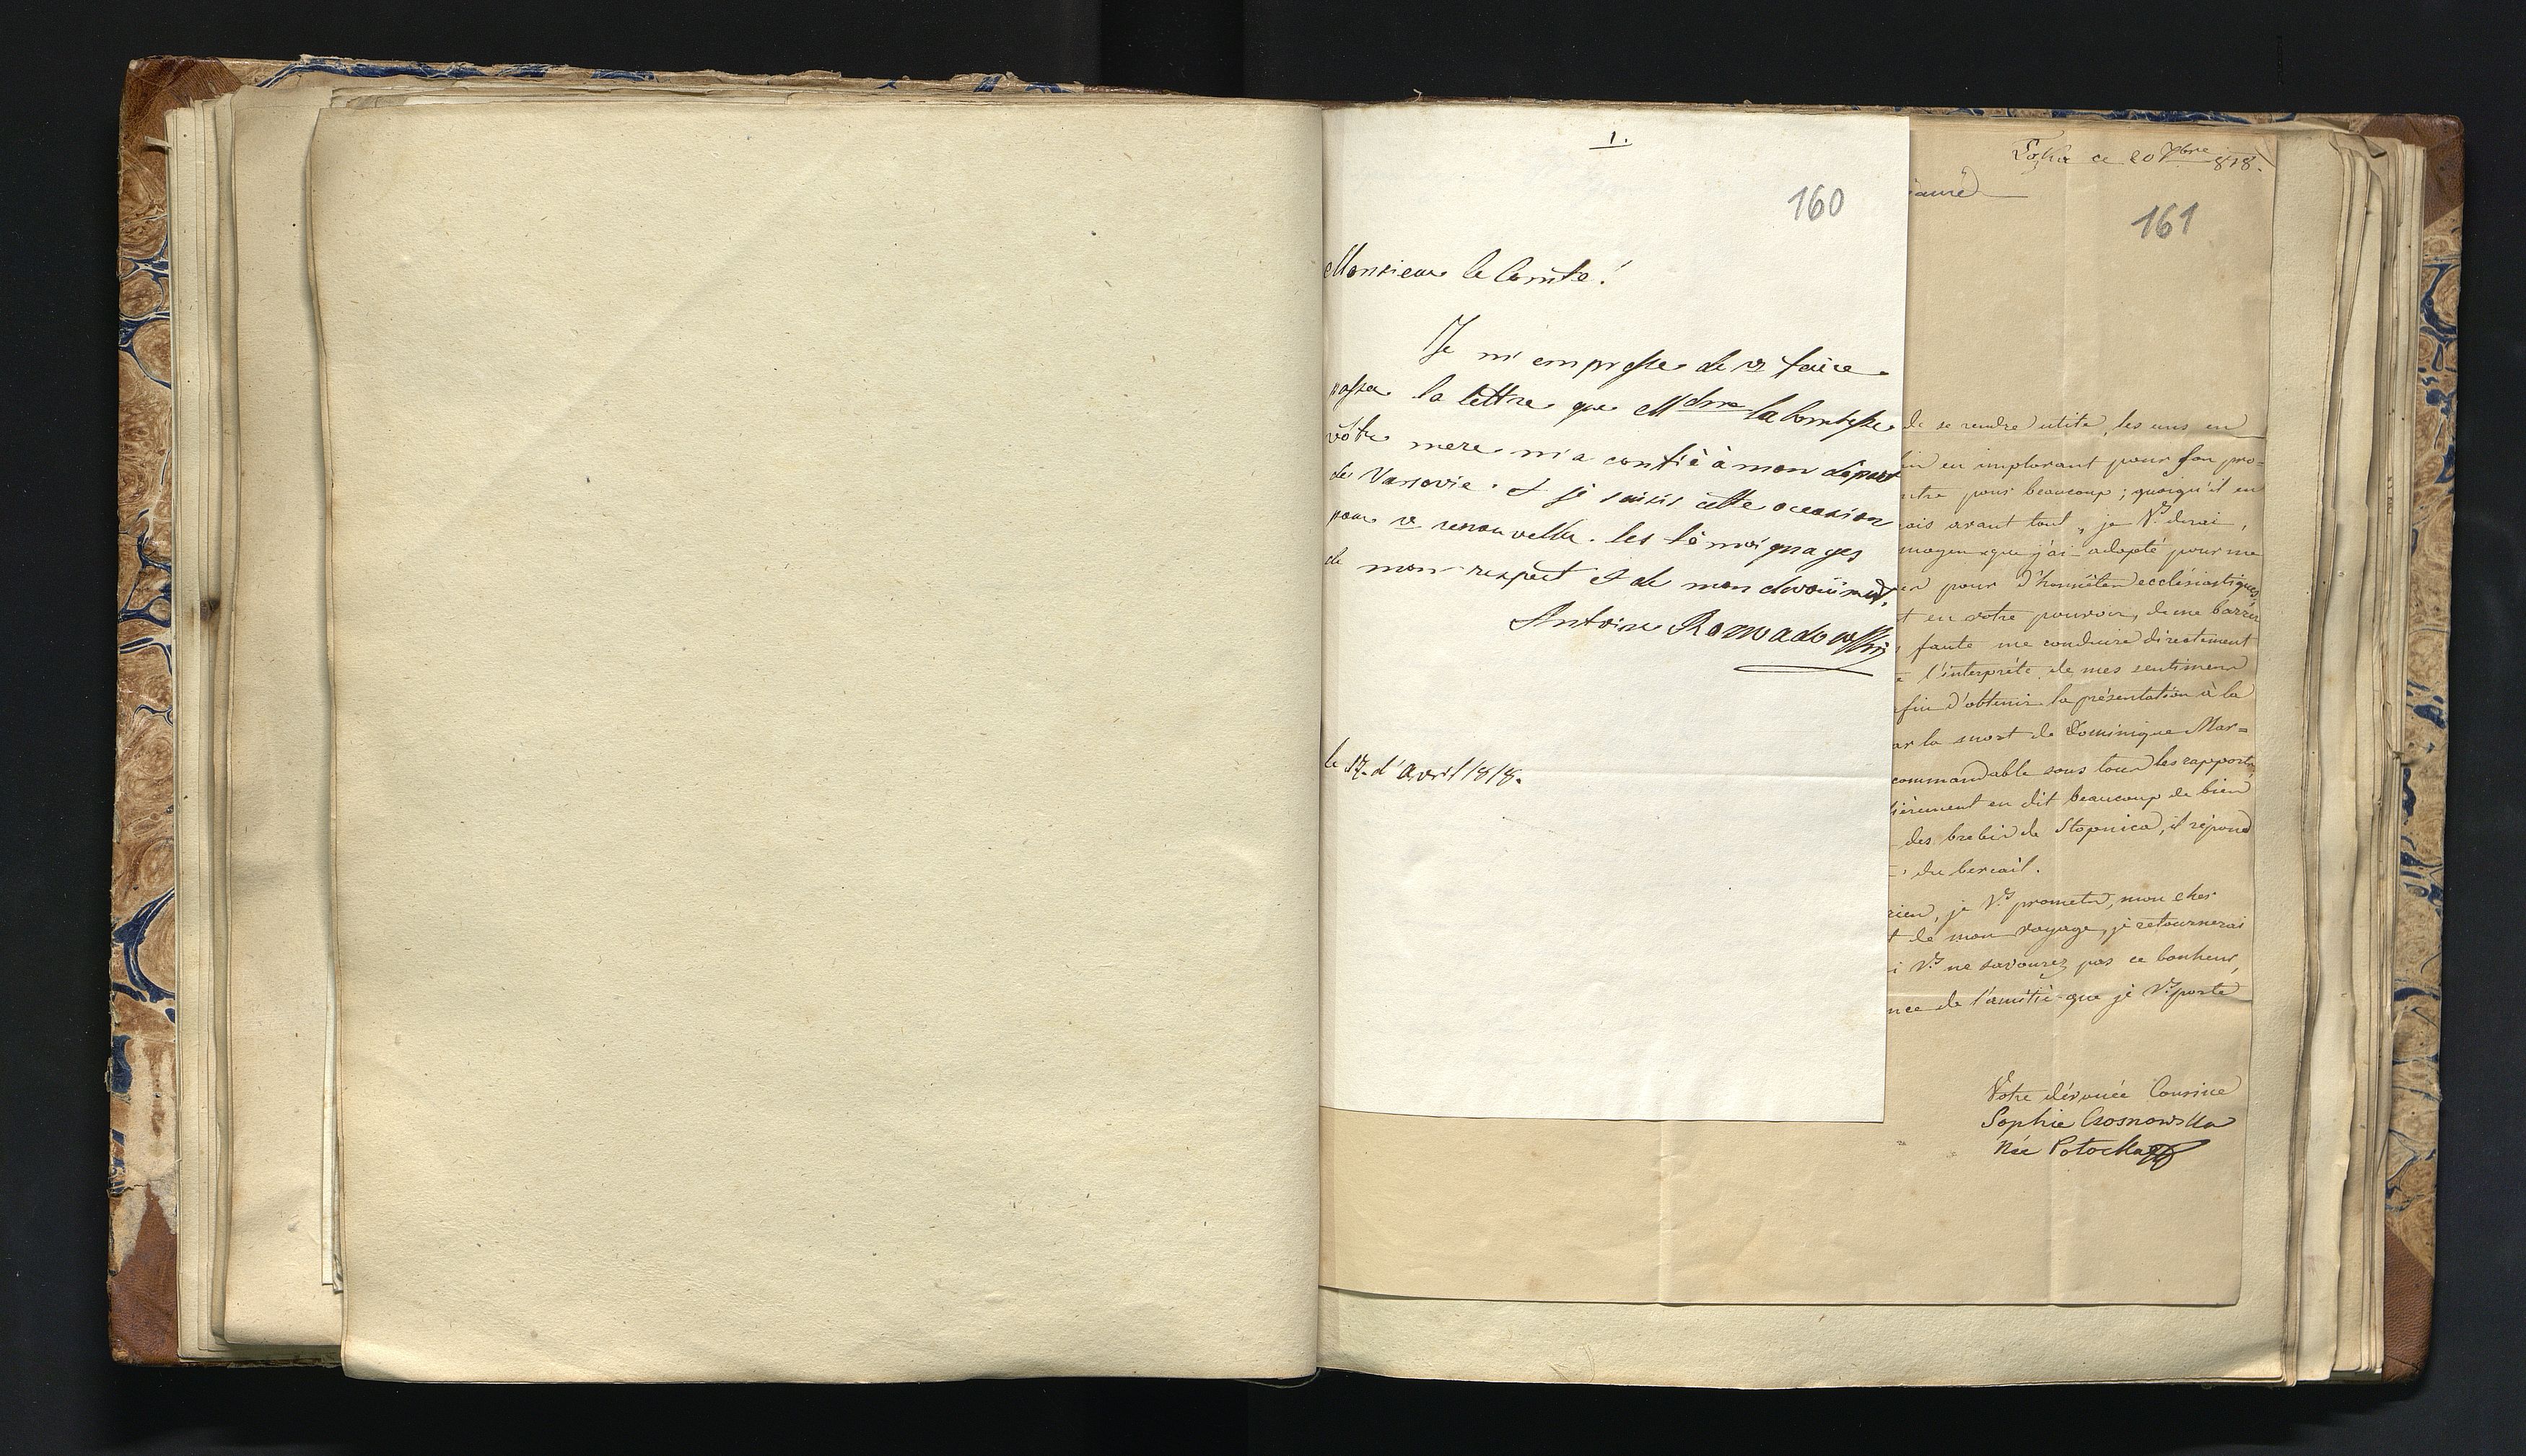 1.
160
Monsieur le Comte!
Je m'empresse de vs faire
passer la lettre que Mdme la Comtesse
vôtre mere m'a confiè à mon départ
de Varsovie. et je saisis cette occasion
pour vs renouveller les témoignages
de mon respect et de mon devoüment,
Antoine Rozwadowski
le 17. d'Avril 1818.
ce 20 7bre 818.
161
de se rendre utile, les uns en
en implorant pour son pro=
pour beaucoup; quoiqu'il en
avant tout, je Vs dirai,
que j'ai adopté pour me
pour d'honnêtes ecclésiastiques,
en votre pouvoir, de me barrer
faute me conduire directement
l'interprète de mes sentimens
d'obtenir la présentation à la
la mort de Dominique Mar=
commandable sous tous les rapports,
en dit beaucoup de bien
des brebis de Stopnica, il répond
du bercail.
rien, je Vs promets, mon cher
de mon voyage, je retournerai
Vs ne savourez pas ce bonheur,
de l'amitié que je Vs porte
Votre dévouée Cousine
Sophie Czosnowska
Née Potocka